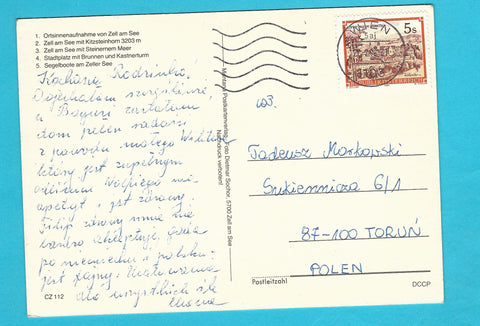 1. Ortsinnenaufnahme von Zell am See
2. Zell am See mit Kitzsteinhorn 3203 m
3. Zell am See mit Steinernem Meer
4. Stadtplatz mit Brunnen und Kastnerturm
5. Segelboote am Zeller See
Kochana Rodzinko,
Dojechałam szczęśliwie
i Bogusi zastałam
dom pełen radości
z powodu małego
który jest zupełnym
apetyt i jest zdrowy.
Filip równy mnie nie
bardzo akceptuje, gada
po niemiecku i polsku
jest fajny. Ucałowania
dla wszystkich
CZ 112
Foto Dietmar Sochor, 5700 Zell am See
Nachdruck verboten!
WIEN
5 S
Tadeusz Markowski
Sukiennicza 6/1
87-100 TORUŃ
POLEN
Postleitzahl
DCCP